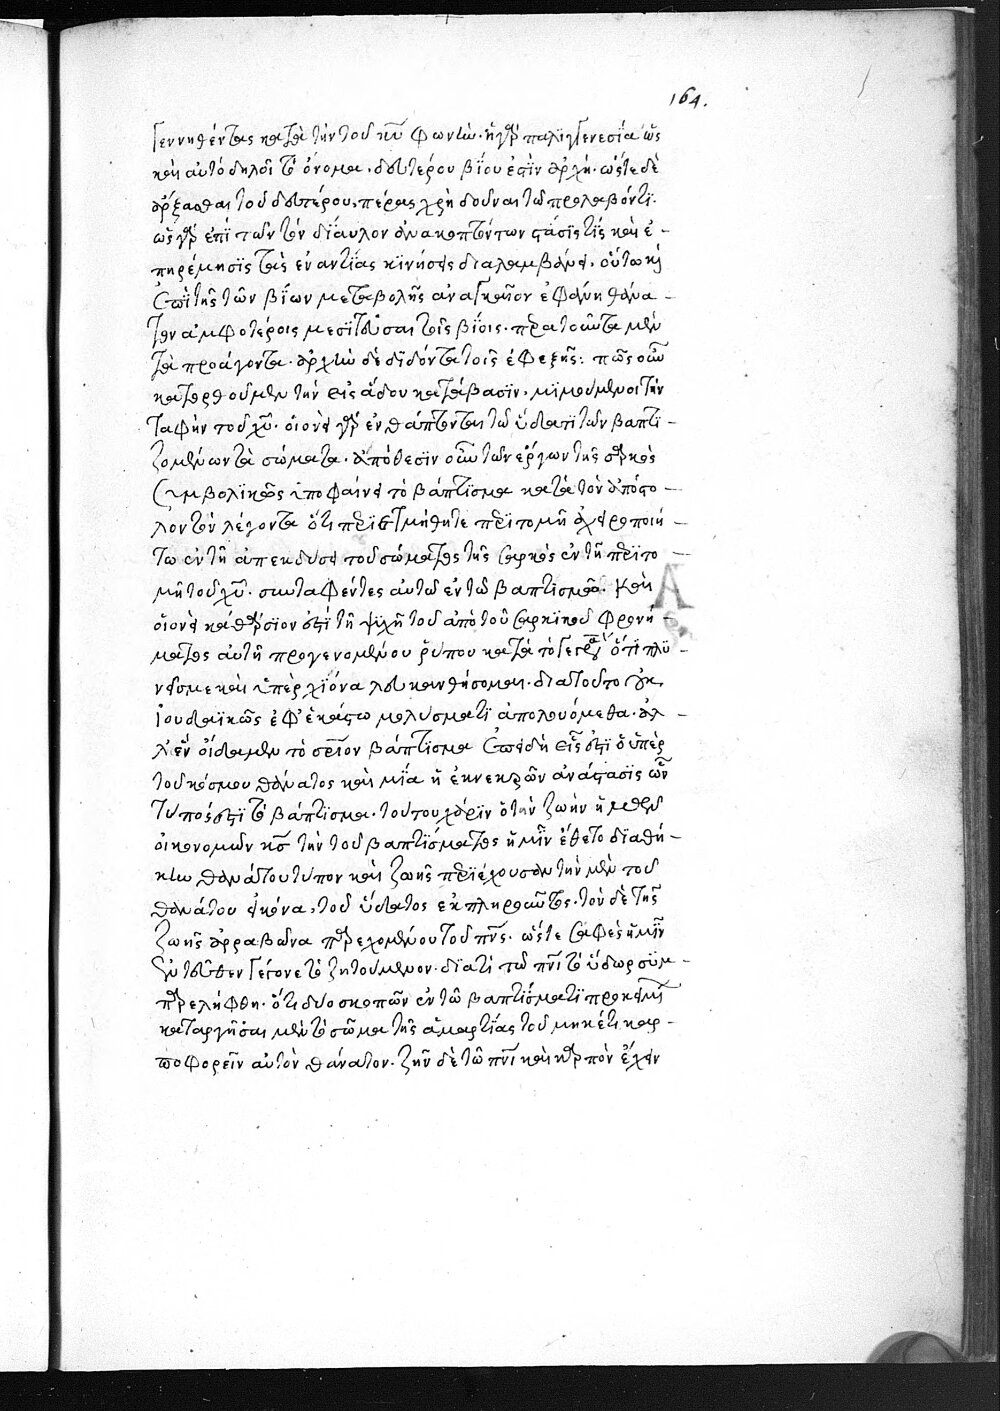 164.
γεννηθέντας κατὰ τὴν τοῦ κυ φωνὴν. ἡ γὰρ παλιγγενεσία ὡς
καὶ αὐτὸ δηλοῖ τὸ ὄνομα, δευτέρου βίου ἐστὶν ἀρχὴ. ὥστε δὲ
ἄρξασθαι τοῦ δευτέρου, πέρας χρὴ δοῦναι τῶ προλαβόντι.
ὡς γὰρ ἐπὶ τῶν τὸν δίαυλον ἀνακαμπτόντων στάσις τίς καὶ ἐ-
πηρέμησις τὰς ἐναντίας κινήσεις διαλαμβάνει, οὕτω καὶ
ἐπὶ τῆς τῶν βίων μεταβολῆς ἀναγκαῖον ἐφάνη θάνα-
τον ἀμφοτέροις μεσιτεῦσαι τοῖς βίοις. περατοῦντα μὲν
τὰ προάγοντα. ἀρχὴν δὲ διδόντα τοῖς ἐφεξῆς: πῶς οὖν
κατορθοῦμεν τὴν εἰς ἅδου κατάβασιν, μιμούμενοι τὴν
ταφὴν τοῦ χυ. οἱονεὶ γὰρ ἐνθάπτονται τῶ ὕδατι τῶν βαπτι-
ζομένων τὰ σώματα. ἀπόθεσιν οὖν τῶν ἔργων τῆς σαρκὸς
συμβολικῶς ὑποφαίνει τὸ βάπτισμα κατὰ τὸν ἀπόστο-
λον τὸν λέγοντα ὅτι περιετμήθητε περιτομῆ ἀχειροποιή-
τω ἐν τῆ ἀπεκδύσει τοῦ σώματος τῆς σαρκὸς ἐν τῆ περιτο-
μῆ τοῦ χυ. συνταφέντες αὐτῶ ἐν τῶ βαπτίσματι. καὶ
οἱονεὶ καθάρσιον ἐστὶ τῆ ψυχῆ τοῦ ἀπὸ τοῦ σαρκικοῦ φρονή-
ματος αὐτῆ προγενομένου ῥύπου κατὰ τὸ γεγραμμένον ὅτι πλυ-
νεῖς με καὶ ὑπὲρ χιόνα λευκανθήσομαι. διατοῦτο οὐκ
ἰουδαϊκῶς ἐφ' ἑκάστω μολύσματι ἀπολουόμεθα. ἀλ-
λ' ἓν οἴδαμεν τὸ σριον βάπτισμα ἐπειδὴ εἷς ἐστὶ ὁ ὑπὲρ
τοῦ κόσμου θάνατος καὶ μία ἡ ἐκ νεκρῶν ἀνάστασις ὧν
τύπος ἐστὶ τὸ βάπτισμα. τούτου χάριν ὁ τὴν ζωὴν ἡμῶν
οἰκονομῶν κς τὴν τοῦ βαπτίσματος ἡμῖν ἔθετο διαθή-
κην θανάτου τύπον καὶ ζωῆς περιέχουσαν τὴν μὲν τοῦ
θανάτου εἰκόνα, τοῦ ὕδατος ἐκπληροῦντος. τὸν δὲ τῆς
ζωῆς ἀρραβῶνα παρεχομένου τοῦ πνς. ὥστε σαφὲς ἡμῖν
ἐντεῦθεν γέγονε τὸ ζητούμενον. διατί τῶ πνι τὸ ὕδωρ συμ-
παρελήφθη. ὅτι δύο σκοπῶν ἐν τῶ βαπτίσματι προκειμένων
καταργῆσαι μὲν τὸ σῶμα τῆς ἁμαρτίας τοῦ μηκέτι καρ-
ποφορεῖν αὐτὸν θάνατον. ζῆν δὲ τῶ πνι καὶ καρπὸν ἔχειν